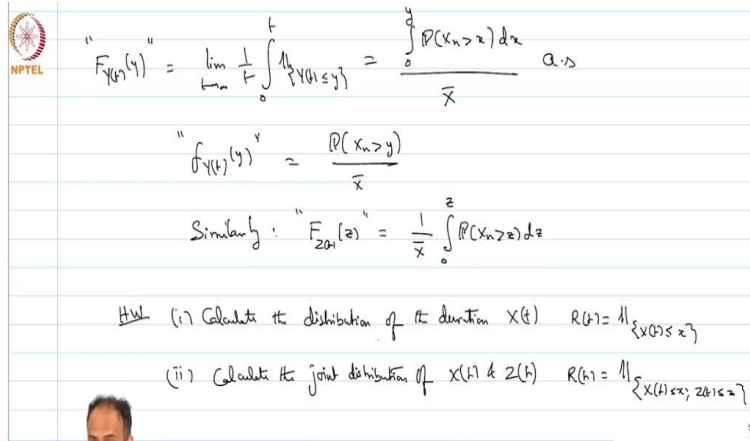 NPTEL
"F_{Y(t)}(y)" = lim_{t→∞} 1/t ∫_0^t 𝟙_{Y(t)≤y} = ∫_0^y ℙ(X_n>x) dx / X̄ a.s
"f_{Y(t)}(y)" = ℙ(X_n>y) / X̄
Similarly: "F_{Z(t)}(z)" = 1/X̄ ∫_0^z ℙ(X_n>z) dz
HW (i) Calculate the distribution of the duration X(t) R(t) = 𝟙_{X(t)≤x}
(ii) Calculate the joint distribution of X(t) & Z(t) R(t) = 𝟙_{X(t)≤x; Z(t)≤z}